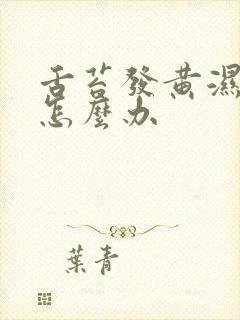 舌苔發黃濕
怎麼办
葉青